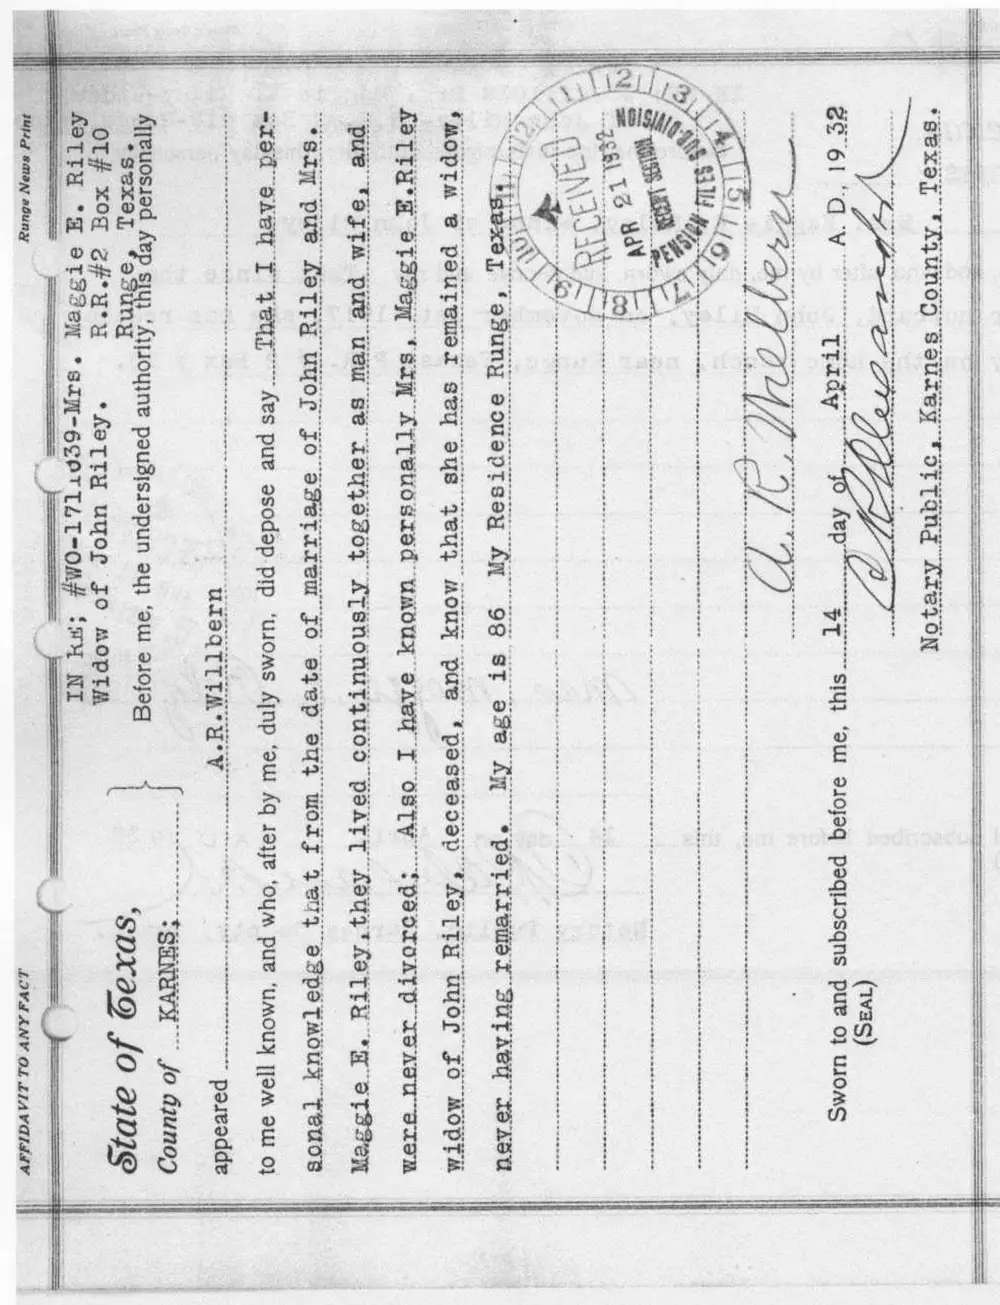 AFFIDAVIT TO ANY FACT
Runge News Print
IN RE; #WO-1711039-Mrs. Maggie E. Riley
Widow of John Riley. R.R.#2 Box #10
Runge, Texas.
State of Texas,
County of KARNES;
Before me, the undersigned authority, this day personally
appeared A.R.Willbern
to me well known, and who, after by me, duly sworn, did depose and say That I have per-
sonal knowledge that from the date of marriage of John Riley and Mrs.
Maggie E. Riley,they lived continuously together as man and wife, and
were never divorced; Also I have known personally Mrs, Maggie E.Riley
widow of John Riley, deceased, and know that she has remaind a widow,
never having remarried. My age is 86 My Residence Runge, Texas.
RECEIVED
APR 21 1932
DEPT SECTION
PENSION FILES SUB-DIVISION
12 1 2 3 4 5 6 7 8 9 10 11
A. R. Willbern
Sworn to and subscribed before me, this 14 day of April A. D. 19 32
(SEAL)
Notary Public, Karnes County, Texas.